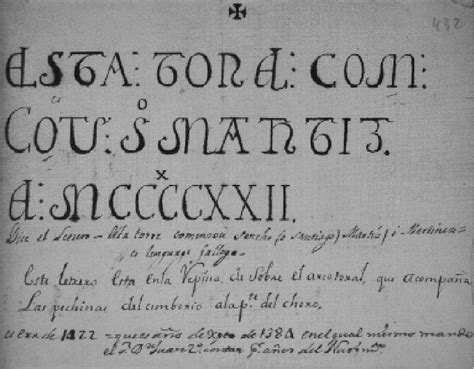 432
ESTA: TORE: COM:
COU: SO MARTIZ.
E: MCCCCXXII.
Dice el Letrero = Esta torre comenzou sancho (o santiago) Martis, o Martinez =
es lenguage gallego.
Este letrero Esta en la Vesina, de Sobre el arcotoral, que acompaña
Las pechinas del cimborio a la pte. del choro.
es era de 1422 = que es año de Xpto de 1384 en el qual mismo mando
el Dn. Juan 1o. contar años del